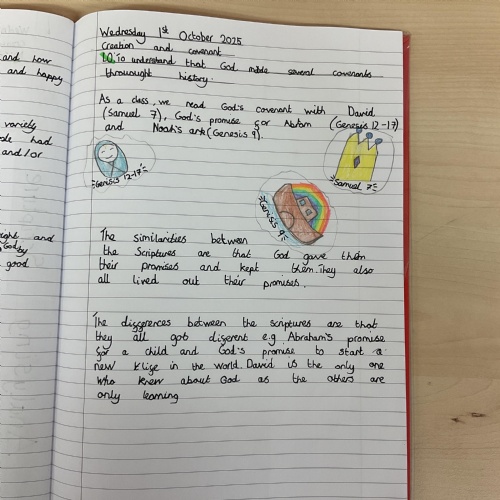 and how
and happy
variety
ple had
and/or
ight and
God by
good
Wednesday 1st October 2025
Creation and covenant
LO: To understand that God made several covenants
throwught history.
As a class, we read God's covenant with David
(Samuel 7), God's promise for Abram (Genesis 12-17)
and Noah's ark (Genesis 9).
Genisis 12-17
Samuel 7
Genisis 9
The similarities between
the Scriptures are that God gave them
their promises and kept them. They also
all lived out their promises.
The differences between the scriptures are that
they all got diferent e.g. Abraham's promise
for a child and God's promise to start a
new life in the world. David is the only one
who knew about God as the others are
only learning